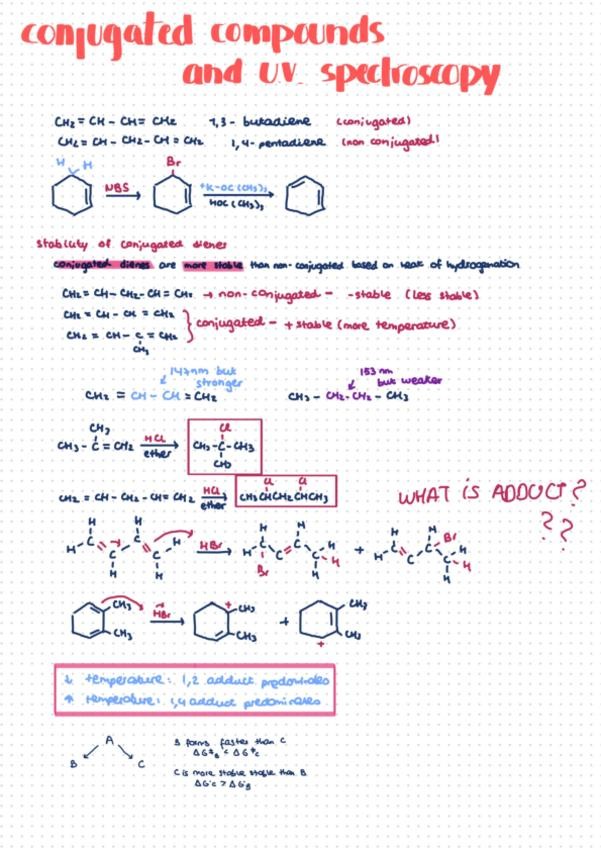 conjugated compounds
and U.V. spectroscopy
CH₂ = CH - CH = CH₂ 1,3- butadiene (conjugated)
CH₂ = CH - CH₂ - CH = CH₂ 1,4-pentadiene (non conjugated)
H H
Br
NBS
+K-OC(CH₃)₃
HOC(CH₃)₃
Stability of conjugated dienes
conjugated dienes are more stable than non-conjugated based on heat of hydrogenation
CH₂ = CH - CH₂ - CH = CH₂ → non-conjugated - -stable (less stable)
CH₂ = CH - CH = CH₂
conjugated - + stable (more temperature)
CH₂ = CH - C = CH₂
CH₃
147nm but
stronger
153 nm
but weaker
CH₂ = CH - CH = CH₂
CH₃ - CH₂ - CH₂ - CH₃
CH₃
CH₃ - C = CH₂
HCl
ether
Cl
CH₃ - C - CH₃
CH₃
CH₂ = CH - CH₂ - CH = CH₂
HCl
ether
Cl Cl
CH₃CHCH₂CHCH₃
WHAT iS ADDUCT?
??
HBr
+
Br
Br
CH₃
CH₃
HBr
+
CH₃
CH₃
+
CH₃
CH₃
+
↓ temperature: 1,2 adduct predominates
↑ temperature: 1,4 adduct predominates
A
B
C
B forms faster than C
ΔG‡B < ΔG‡C
C is more stable stable than B
ΔG°C > ΔG°B